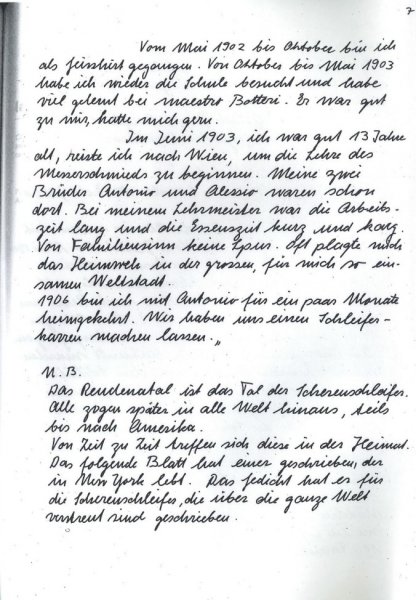 7
Vom Mai 1902 bis Oktober bin ich
als gegangen. Von Oktober bis Mai 1903
habe ich wieder die Schule besucht und habe
viel gelernt bei maestro Botteri. Er war gut
zu mir, hatte mich gern.
Im Juni 1903, ich war gut 13 Jahre
alt, reiste ich nach Wien, um die Lehre des
Messerschmieds zu beginnen. Meine zwei
Brüder Antonio und Alessio waren schon
dort. Bei meinem Lehrmeister war die Arbeits-
zeit lang und die Essenszeit kurz und karg.
Von Familiensinn keine Spur. Oft plagte mich
das Heimweh in der grossen, für mich so ein-
samen Weltstadt.
1906 bin ich mit Antonio für ein paar Monate
heimgekehrt. Wir haben uns einen Schleifer-
karren machen lassen."
N.B.
Das Rendenatal ist das Tal der Scherenschleifer.
Alle zogen später in alle Welt hinaus, teils
bis nach Amerika.
Von Zeit zu Zeit treffen sich diese in der Heimat.
Das folgende Blatt hat einer geschrieben, der
in New York lebt. Das Gedicht hat er für
die Scherenschleifer, die über die ganze Welt
verstreut sind geschrieben.